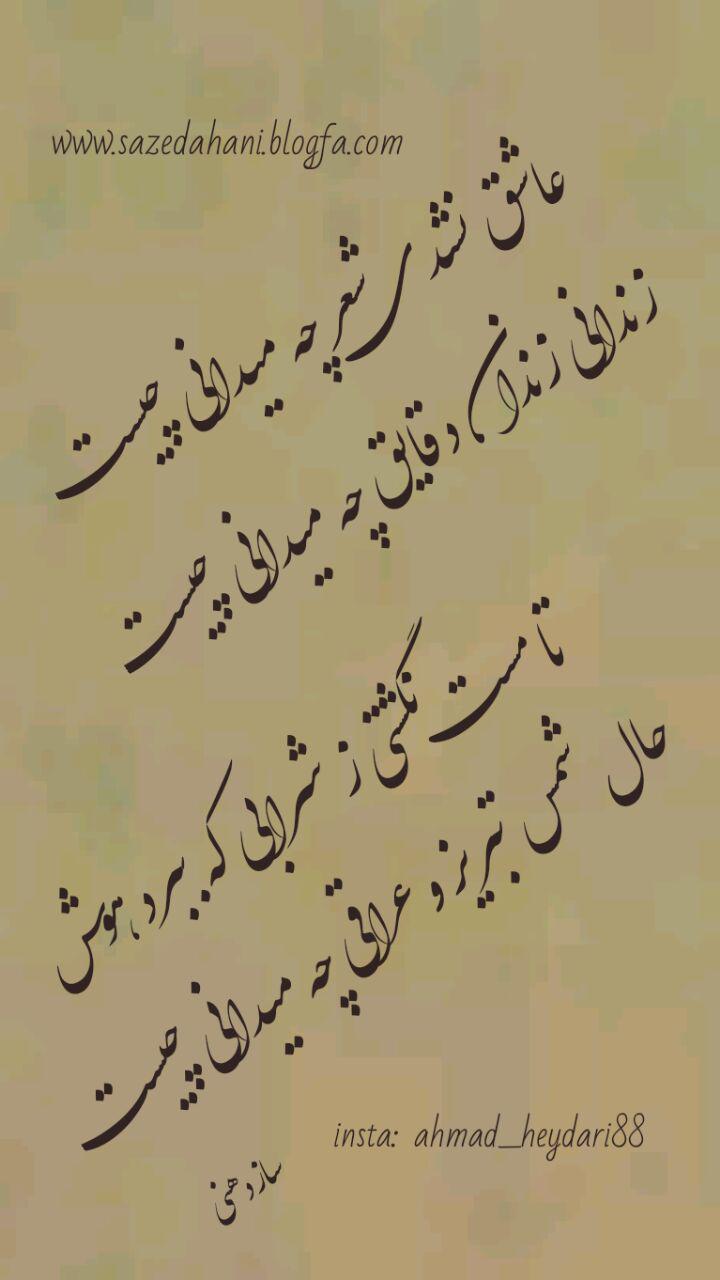 www.sazedahani.blogfa.com
عاشق نشدی شعر چه میدانی چیست
زندانی زندان دقایق چه میدانی چیست
تا مست نگشتی ز شرابی که ببرد هوش
حال شمس تبریز و عراقی چه میدانی چیست
insta: ahmad_heydari88
ساز دهنی